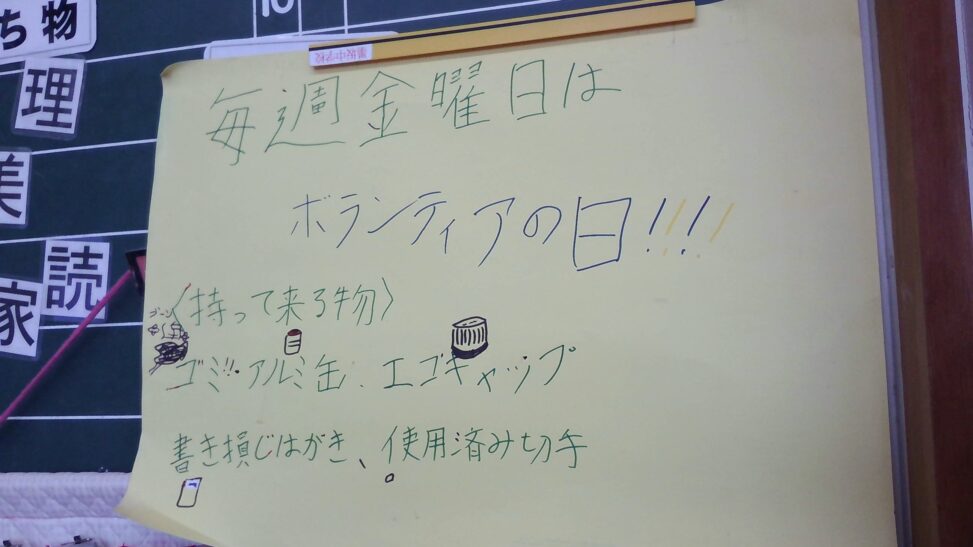 ち物
10
理
美
読
家
毎週金曜日は
ボランティアの日!!!!
〈持って来る物〉
ゴミ!!・アルミ缶、エゴキャップ
書き損じはがき、使用済み切手